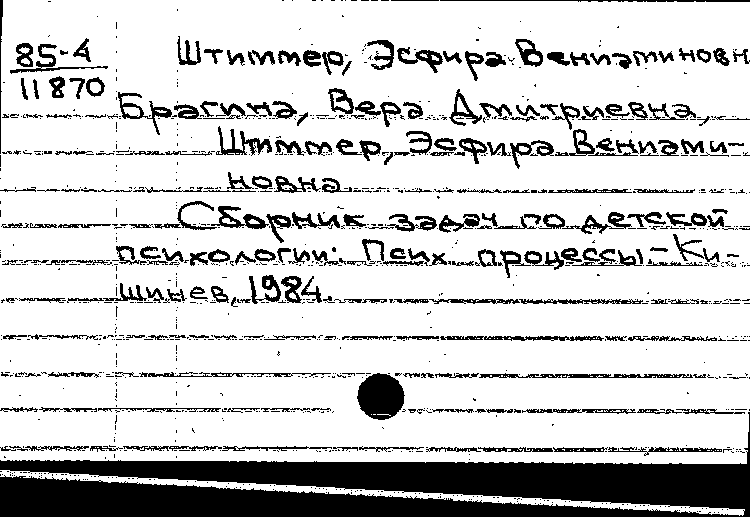 85-4 Штиммер, Эсфира Вениаминовн
11870
Брагина, Вера Дмитриевна,
Штиммер, Эсфира Вениами-
новна
Сборник задач по детской
психологии: Псих. процессы.- Ки-
шинев, 1984.